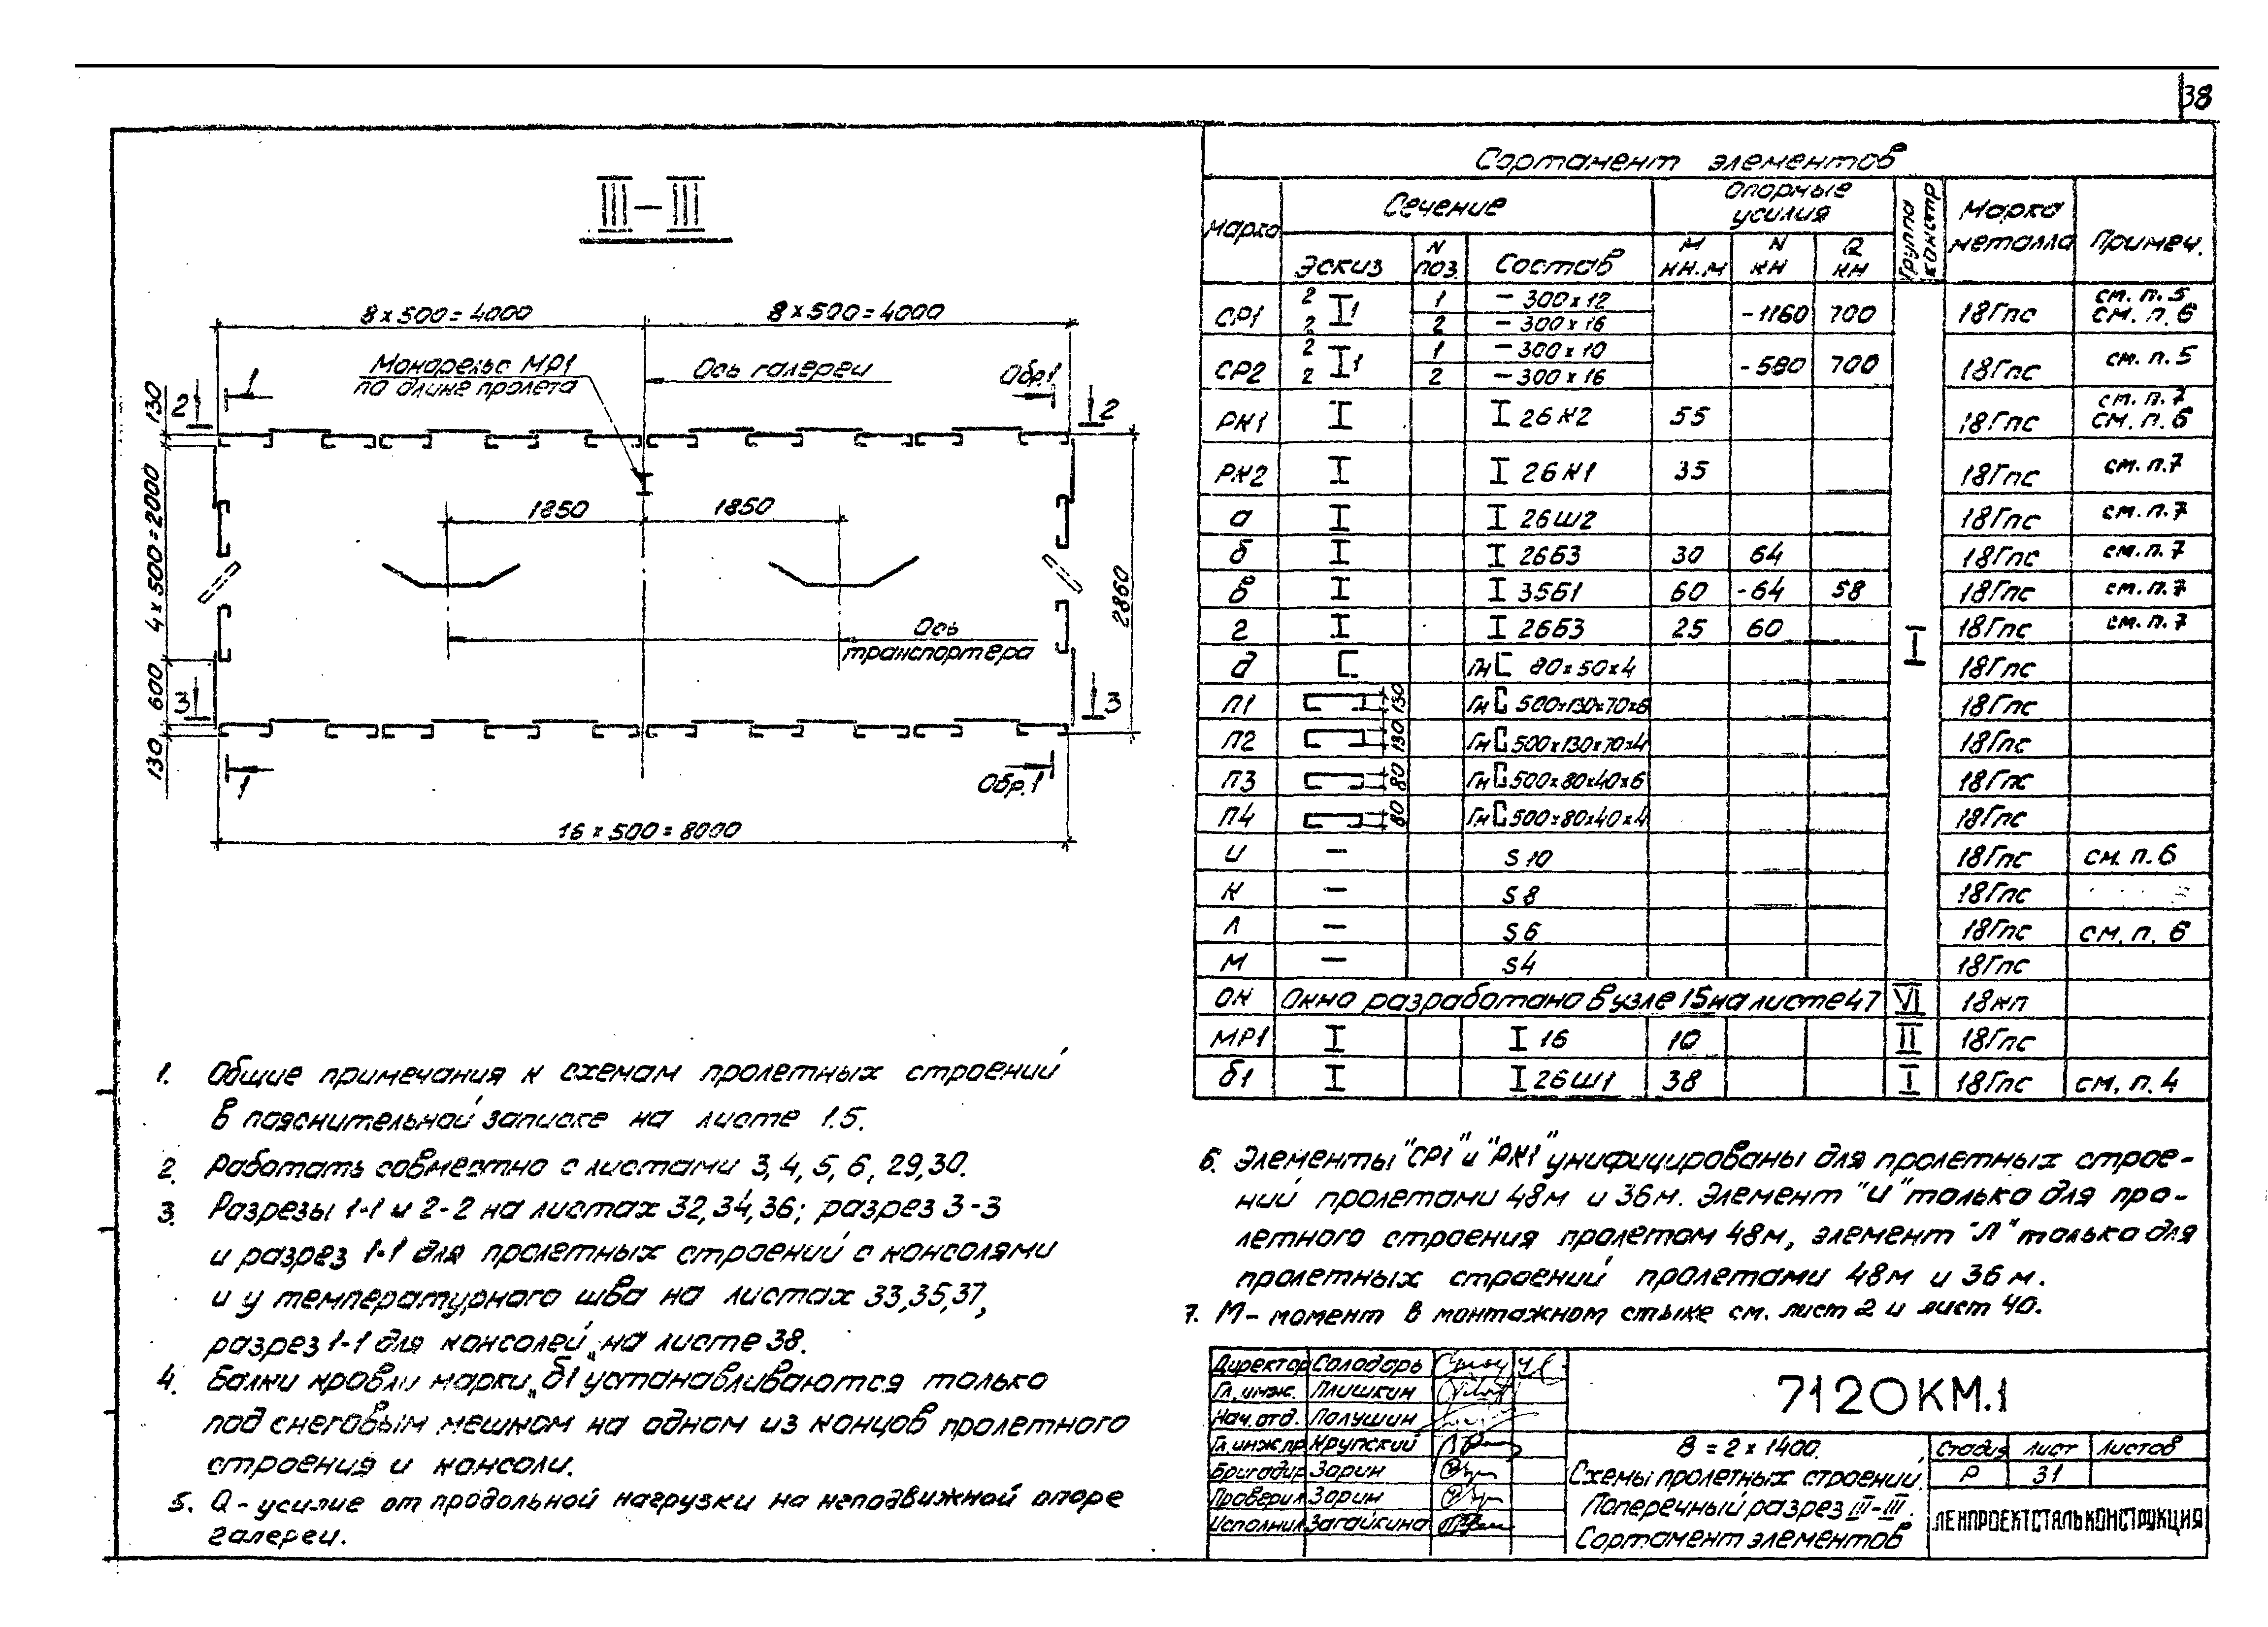 38
III-III
8 x 500 = 4000
8 x 500 = 4000
Монорельс МР1
по длине пролета
Ось галереи
1
Обр.1
2
2
130
4 x 500 = 2000
600
130
1850
1850
2860
Ось
транспортера
3
3
1
Обр.1
16 x 500 = 8000
1. Общие примечания к схемам пролетных строений
в пояснительной записке на листе 1.5.
2. Работать совместно с листами 3, 4, 5, 6, 29, 30.
3. Разрезы 1-1 и 2-2 на листах 32, 34, 36; разрез 3-3
и разрез 1-1 для пролетных строений с консолями
и у температурного шва на листах 33, 35, 37,
разрез 1-1 для консолей на листе 38.
4. Балки кровли марки „б1" устанавливаются только
под снеговым мешком на одном из концов пролетного
строения и консоли.
5. Q - усилие от продольной нагрузки на неподвижной опоре
галереи.
Сортамент элементов
Марка Сечение Опорные усилия Группа констр Марка металла Примеч.
Эскиз N поз. Состав M кн.м N кн Q кн
СР1 2 2 1 1 - 300 x 12 -1160 700 18Гпс см. п. 5
2 - 300 x 16 см. п. 6
СР2 2 2 1 1 - 300 x 10 -580 700 18Гпс см. п. 5
2 - 300 x 16
РК1 I I 26К2 55 18Гпс см. п. 7
см. п. 6
РК2 I I 26К1 35 18Гпс см. п. 7
а I I 26Ш2 18Гпс см. п. 7
б I I 26Б3 30 64 18Гпс см. п. 7
в I I 35Б1 60 -64 58 18Гпс см. п. 7
г I I 26Б3 25 60 I 18Гпс см. п. 7
д [ Гн [ 80 x 50 x 4 18Гпс
П1 130 Гн [ 500x130x70x6 18Гпс
П2 130 Гн [ 500x130x70x4 18Гпс
П3 80 Гн [ 500x80x40x6 18Гпс
П4 80 Гн [ 500x80x40x4 18Гпс
И - S 10 18Гпс см. п. 6
К - S 8 18Гпс
Л - S 6 18Гпс см. п. 6
М - S4 18Гпс
ОК Окно разработано в узле 15 на листе 47 VI 18кп
МР1 I I 16 10 II 18Гпс
б1 I I 26Ш1 38 I 18Гпс см. п. 4
6. Элементы "СР1" и "РК1" унифицированы для пролетных строе-
ний пролетами 48м и 36м. Элемент "И" только для про-
летного строения пролетом 48м, элемент "Л" только для
пролетных строений пролетами 48м и 36м.
7. М - момент в монтажном стыке см. лист 2 и лист 40.
Директор Солодарь
Гл. инж. Плишкин
Нач. отд. Полушин
Гл. инж. пр. Крупский
Бригадир Зорин
Проверил Зорин
Исполнил Загайкина
7120КМ.1
В = 2 x 1400.
Схемы пролетных строений.
Поперечный разрез III-III.
Сортамент элементов
Стадия Лист Листов
Р 31
ЛЕНПРОЕКТСТАЛЬКОНСТРУКЦИЯ